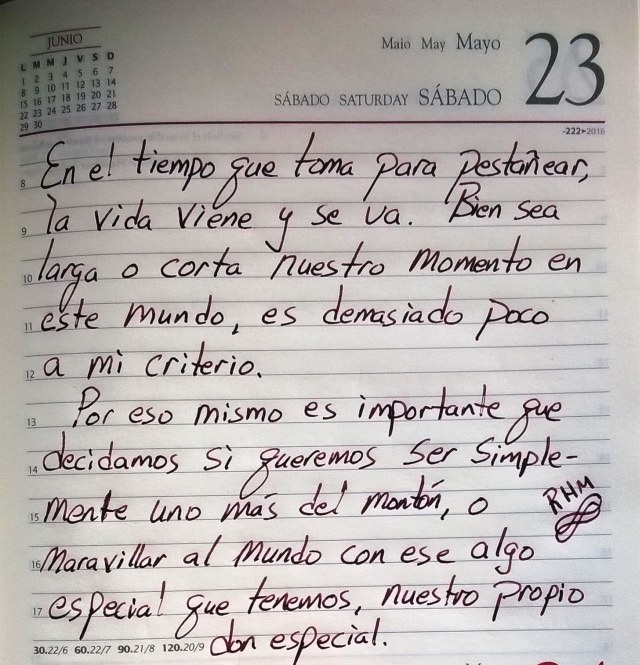 JUNIO
L M M J V S D
1 2 3 4 5 6 7
8 9 10 11 12 13 14
15 16 17 18 19 20 21
22 23 24 25 26 27 28
29 30
Maio May Mayo
23
SÁBADO SATURDAY SÁBADO
-222▸2016
8 En el tiempo que toma para pestañear,
9 la vida viene y se va. Bien sea
10 larga o corta nuestro momento en
11 este mundo, es demasiado poco
12 a mi criterio.
13 Por eso mismo es importante que
14 decidamos si queremos ser simple-
15 mente uno más del montón, o
RHM
16 maravillar al mundo con ese algo
17 especial que tenemos, nuestro propio
don especial.
30.22/6 60.22/7 90.21/8 120.20/9